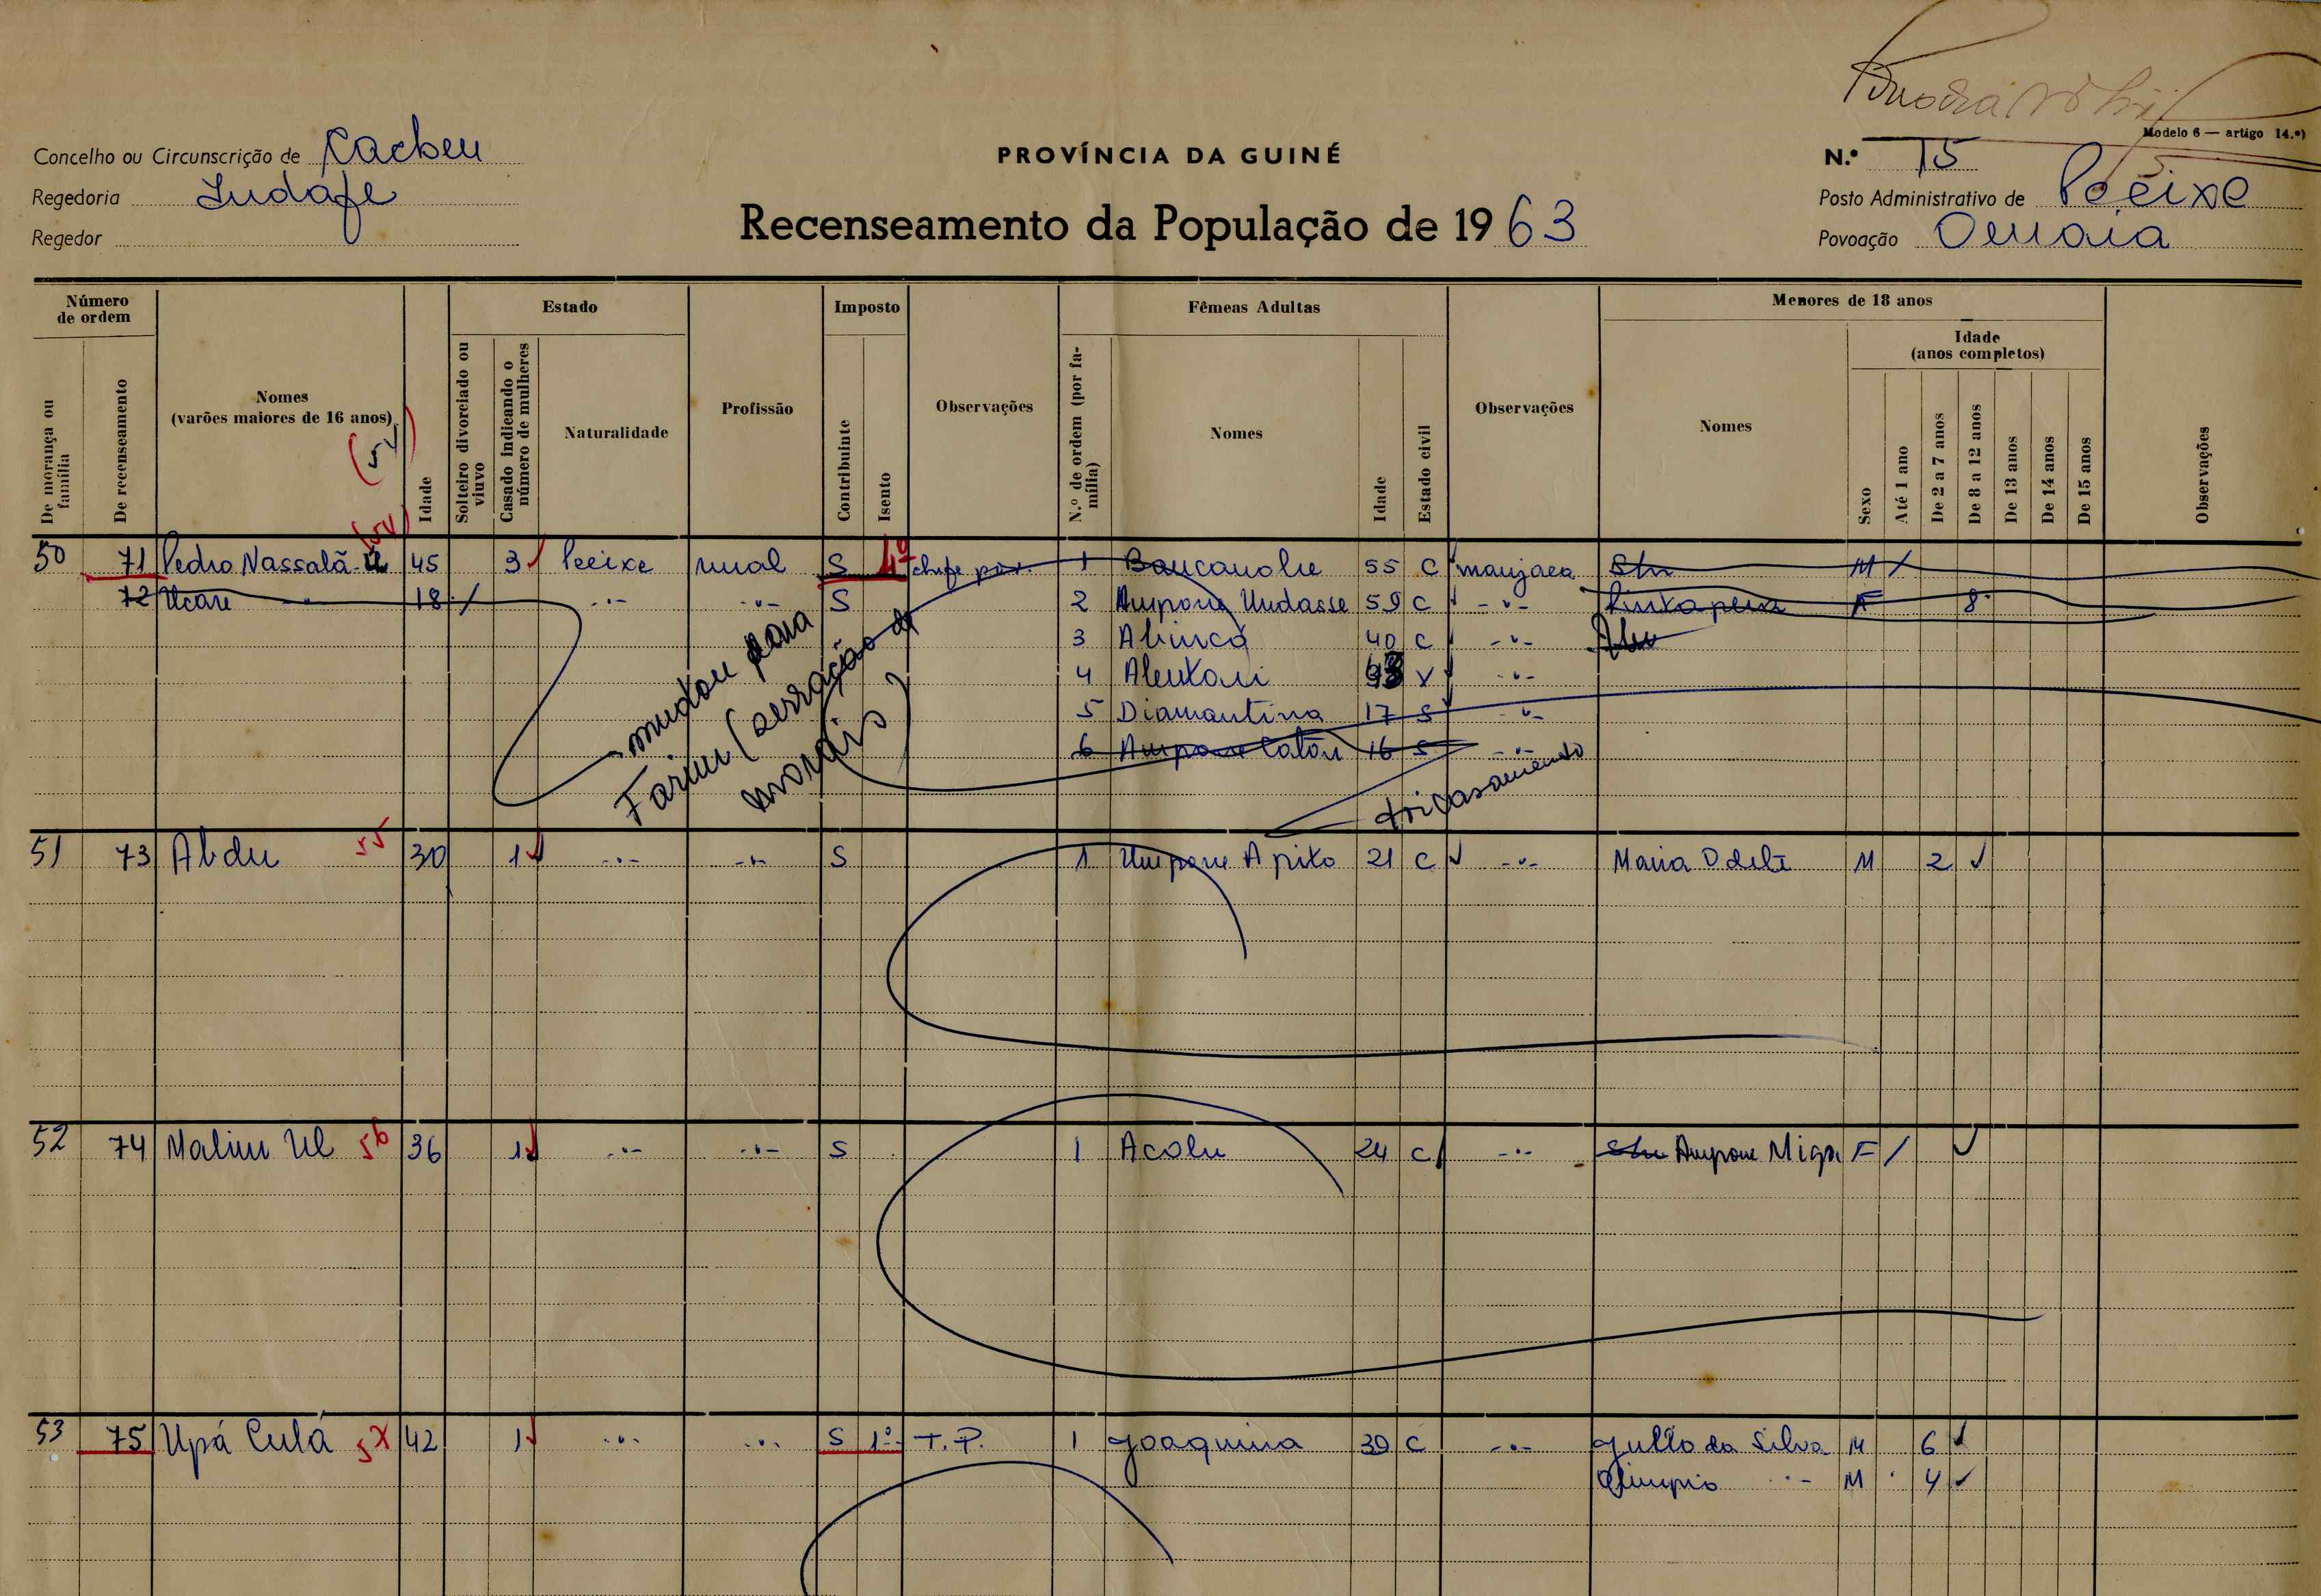 Modelo 6 — artigo 14.º)
Concelho ou Circunscrição de Cacheu
PROVÍNCIA DA GUINÉ
N.º 15
Regedoria Indafe
Recenseamento da População de 1963
Posto Administrativo de Peeixe
Regedor
Povoação
Número de ordem
Estado
Imposto
Fêmeas Adultas
Menores de 18 anos
Idade
(anos completos)
De morança ou família
De recenseamento
Nomes
(varões maiores de 16 anos)
Idade
Solteiro divorciado ou viuvo
Casado indicando o número de mulheres
Naturalidade
Profissão
Contribuinte
Isento
Observações
N.º de ordem (por família)
Nomes
Idade
Estado civil
Observações
Nomes
Sexo
Até 1 ano
De 2 a 7 anos
De 8 a 12 anos
De 13 anos
De 14 anos
De 15 anos
Observações
50 71 Pedro Nassalã 45 3 Peeixe rural S chefe pov. 1 55 C manjaca M
72 Ucau 18 / -"- -"- S 2 Ampone Undasse 59 C -"- F 8
3 Abinca 40 C -"-
4 V -"-
5 Diamantina 17 S -"-
6 Ampone Catau 16 S -"-
mudou para
Farim (serração de
morais)
51 73 Abdu 55 30 1 -"- -"- S 1 Umpone Apito 21 C -"- Maria Odete M 2
52 74 Malim Ul 56 36 1 -"- -"- S 1 Acolu 24 C -"- Ampone Miga F /
53 75 Upá Culá 57 42 1 -"- -"- S 1º T.P. 1 Joaquina 39 C -"- Julio da Silva M 6
Olimpio -"- M 4